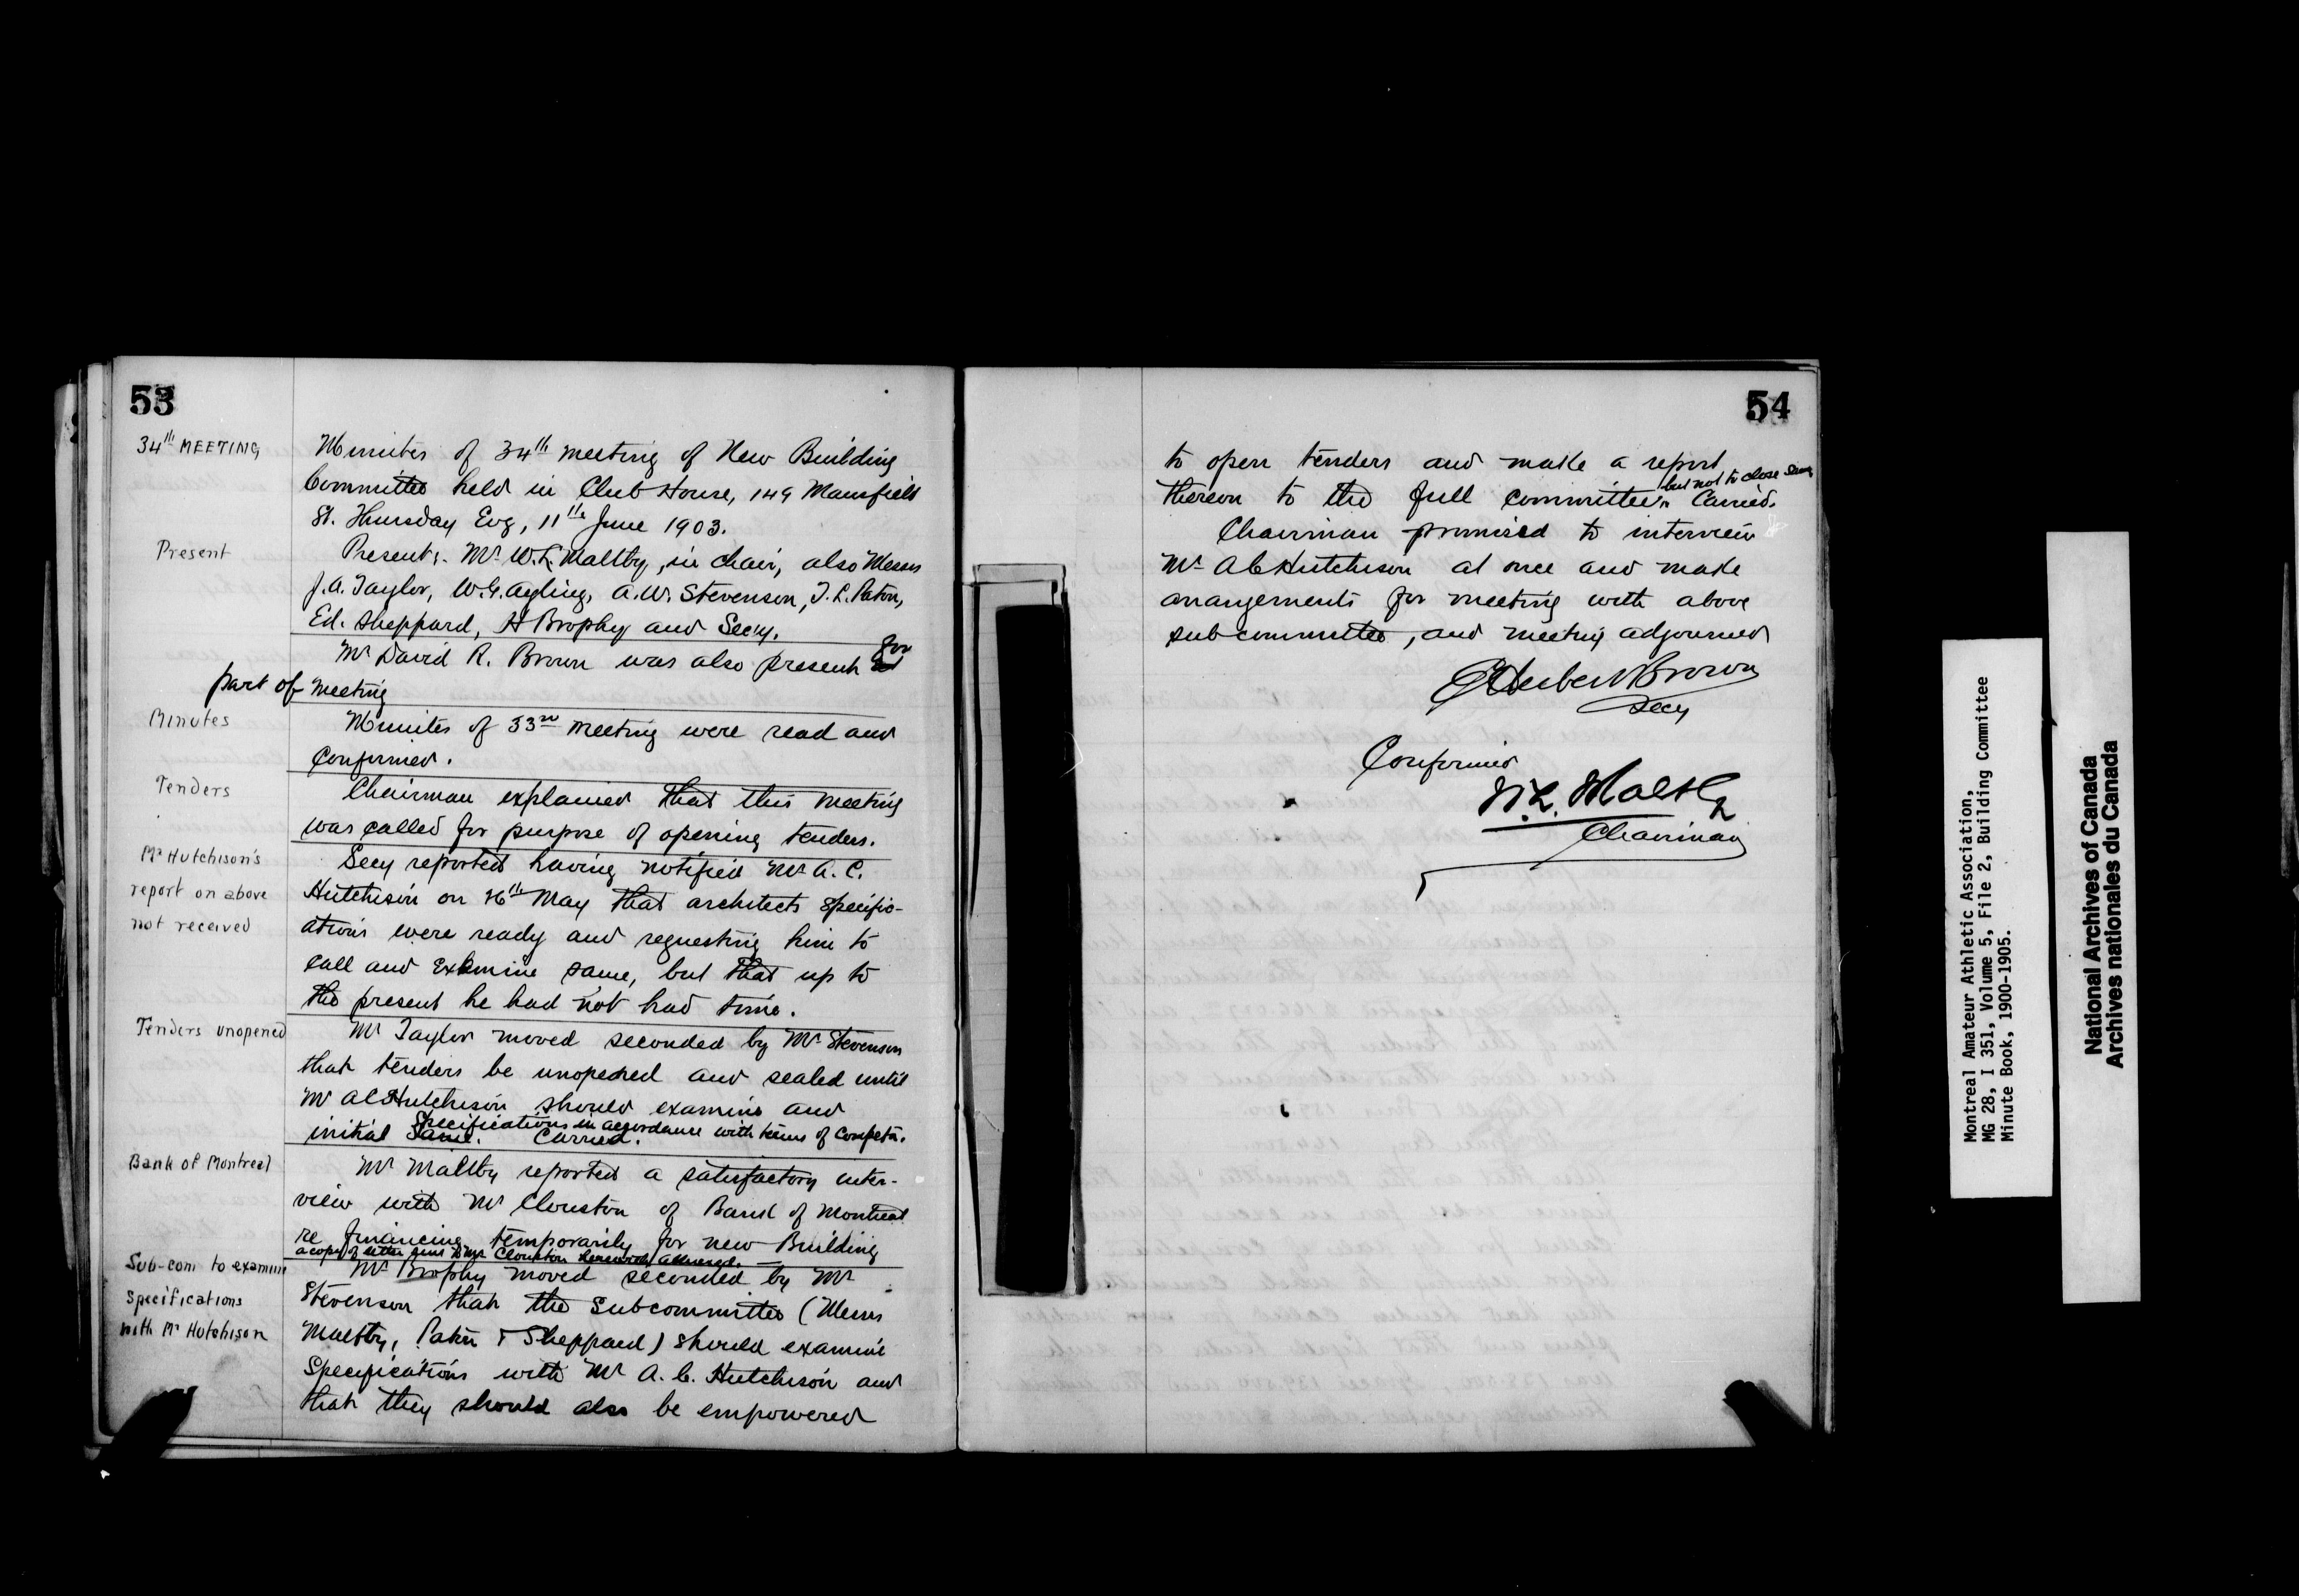 53
34th MEETING
Minutes of 34th meeting of New Building
Committee held in Club House, 149 Mansfield
St. Thursday Evg, 11th June 1903.
Present
Present:- Mr W.L. Maltby, in chair, also Messrs
J.A. Taylor, W.G. Ayling, A.W. Stevenson, T.L. Paton,
Ed. Sheppard, H Brophy and Secy.
Mr David R. Brown was also present for
part of meeting
Minutes
Minutes of 33rd meeting were read and
confirmed.
Tenders
Chairman explained that this meeting
was called for purpose of opening tenders.
Mr Hutchison's
report on above
not received
Secy reported having notified Mr A. C.
Hutchison on 26th May that architects specific-
ations were ready and requesting him to
call and examine same, but that up to
the present he had not had time.
Tenders unopened
Mr Taylor moved seconded by Mr Stevenson
that tenders be unopened and sealed until
Mr A C Hutchison should examine and
specifications in accordance with terms of Competn.
initial same. Carried.
Bank of Montreal
Mr Maltby reported a satisfactory inter-
view with Mr Clouston of Bank of Montreal
re financing temporarily for new Building
a copy of letter given to Mr Clouston herewith annexed.
Sub-com to examine
specifications
with Mr Hutchison
Mr Brophy moved seconded by Mr
Stevenson that the subcommittee (Messrs
Maltby, Paton & Sheppard) should examine
Specifications with Mr A. C. Hutchison and
that they should also be empowered
54
to open tenders and make a report
but not to close
thereon to the full committee. Carried.
Chairman promised to interview
Mr A C Hutchison at once and make
arrangements for meeting with above
subcommittee, and meeting adjourned
Herbert Brown
Secy
Confirmed
W.L. Maltby
Chairman
Montreal Amateur Athletic Association,
MG 28, I 351, Volume 5, File 2, Building Committee
Minute Book, 1900-1905.
National Archives of Canada
Archives nationales du Canada